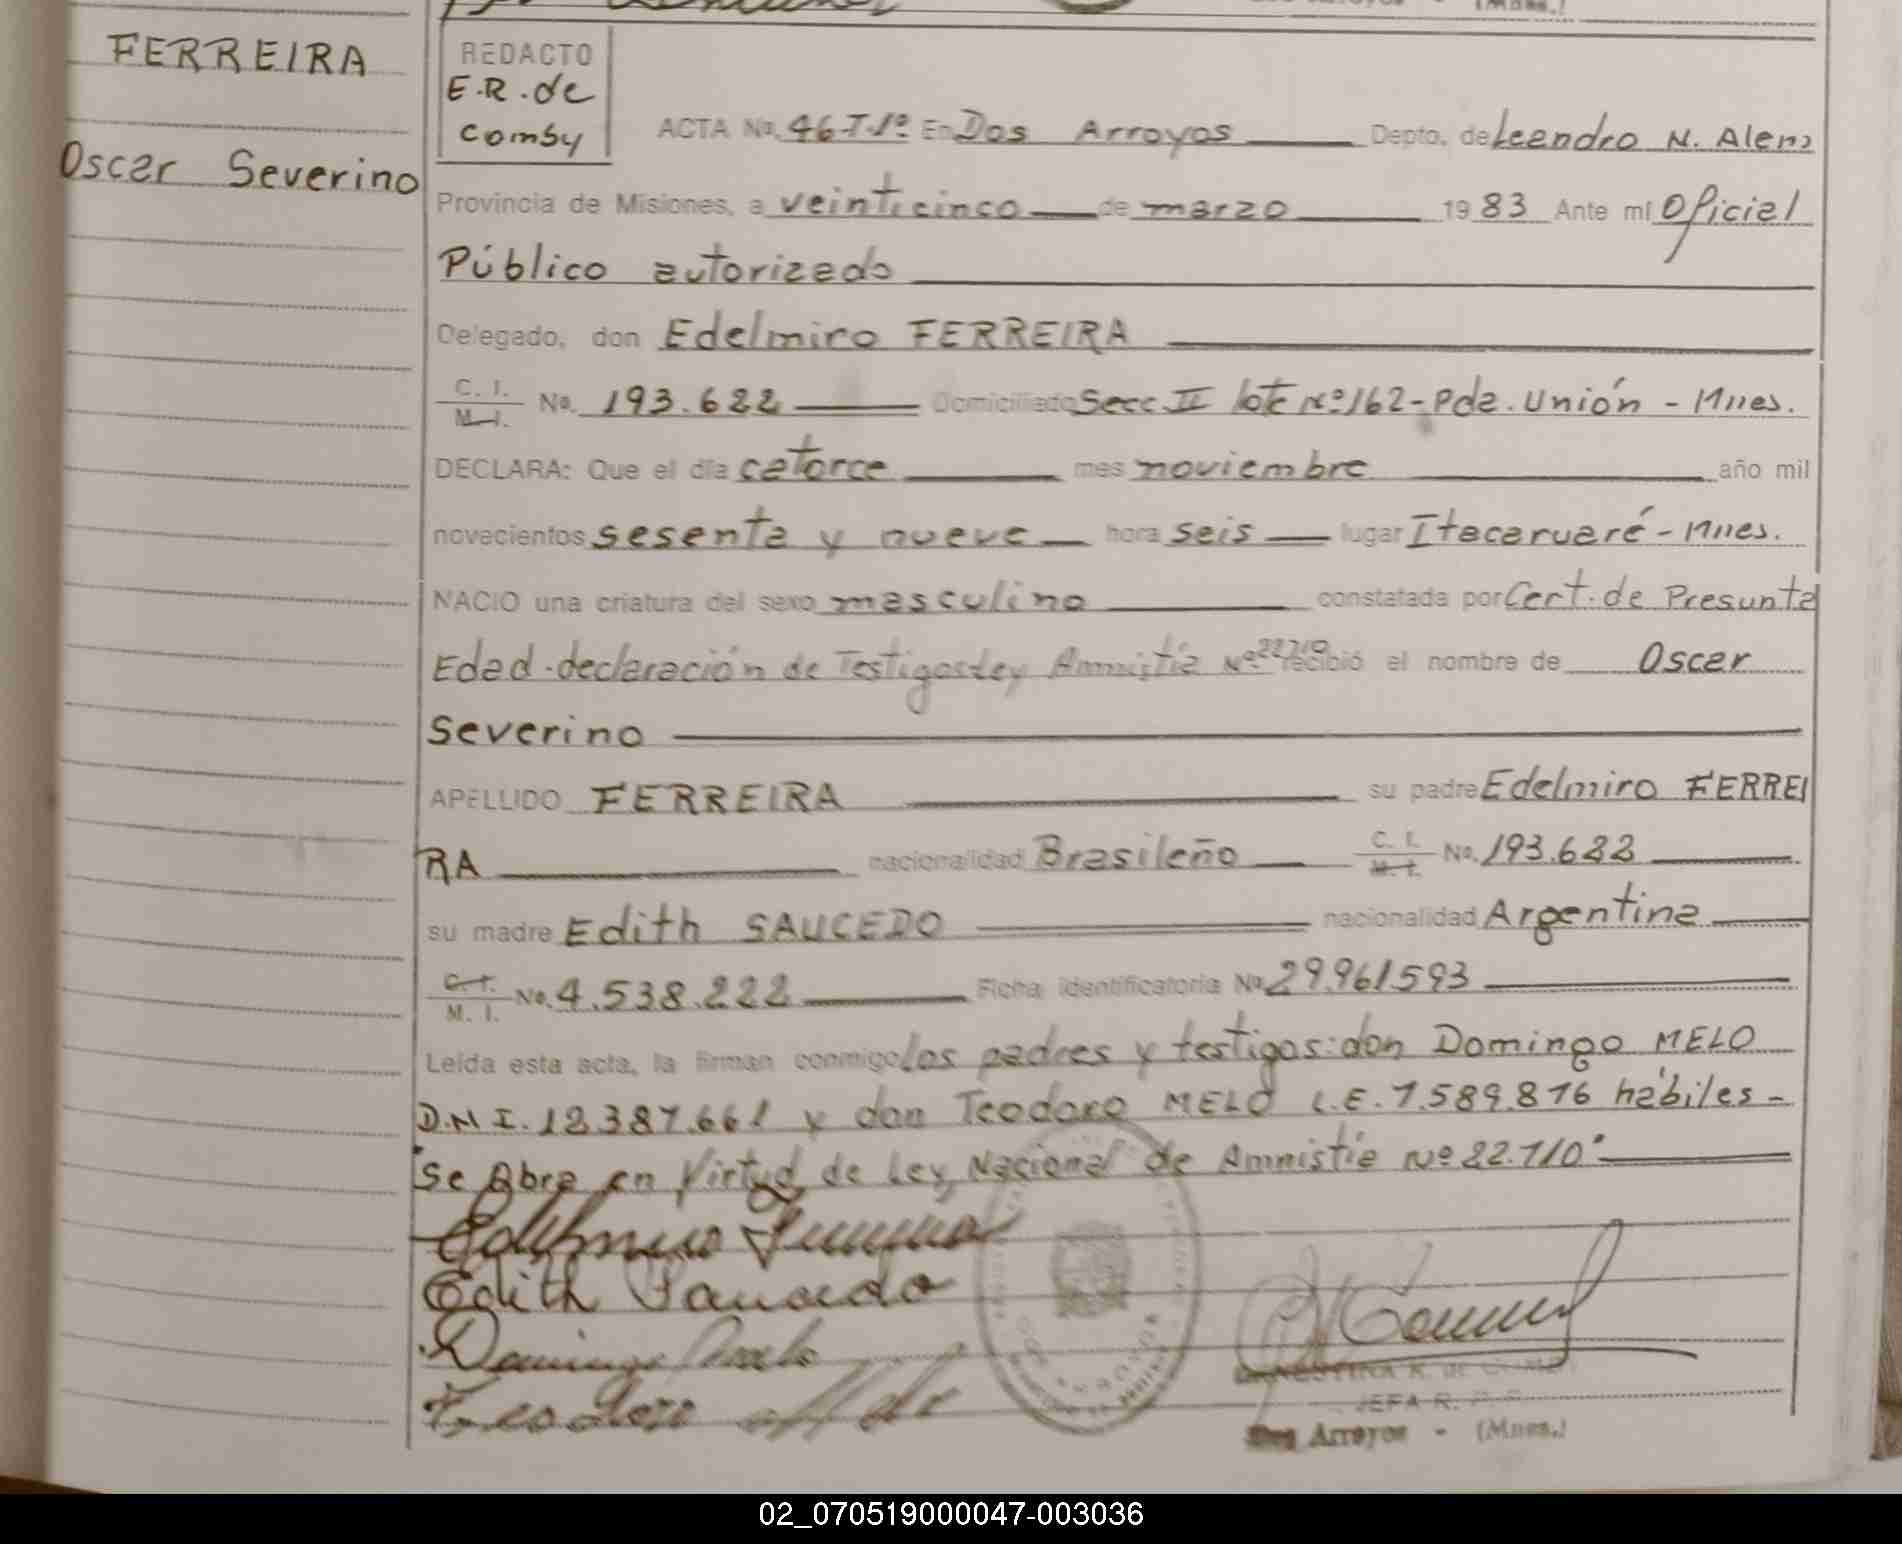 FERREIRA
Oscar Severino
REDACTO
E.R. de
Comby
ACTA No. 46 T.1º En Dos Arroyos Depto. de Leandro N. Alem
Provincia de Misiones, a veinticinco de marzo 1983 Ante mi Oficial
Público autorizado
Delegado, don Edelmiro FERREIRA
C. I. M. I. No. 193.622 Domiciliado Secc II lote Nº 162 - Pda. Unión - Mnes.
DECLARA: Que el día catorce mes noviembre año mil
novecientos sesenta y nueve hora seis lugar Itacaruaré - Mnes.
NACIO una criatura del sexo masculino constatada por Cert. de Presunta
Edad - declaración de Testigos Ley Amnistía Nº 22710 recibió el nombre de Oscar
Severino
APELLIDO FERREIRA su padre Edelmiro FERREI
RA nacionalidad Brasileño C. I. M. I. No. 193.622
su madre Edith SAUCEDO nacionalidad Argentina
C. I. M. I. No. 4.538.222 Ficha identificatoria No 29.961593
Leída esta acta, la firman conmigo los padres y testigos: don Domingo MELO
D.N.I. 12.387.661 y don Teodoro MELO L.E. 7.589.876 hábiles -
"Se Abre en Virtud de Ley Nacional de Amnistía Nº 22.710"
Edelmiro Ferreira
Edith Saucedo
Domingo Melo
Teodoro
JEFA R.
Dos Arroyos - (Mnes.)
02_070519000047-003036